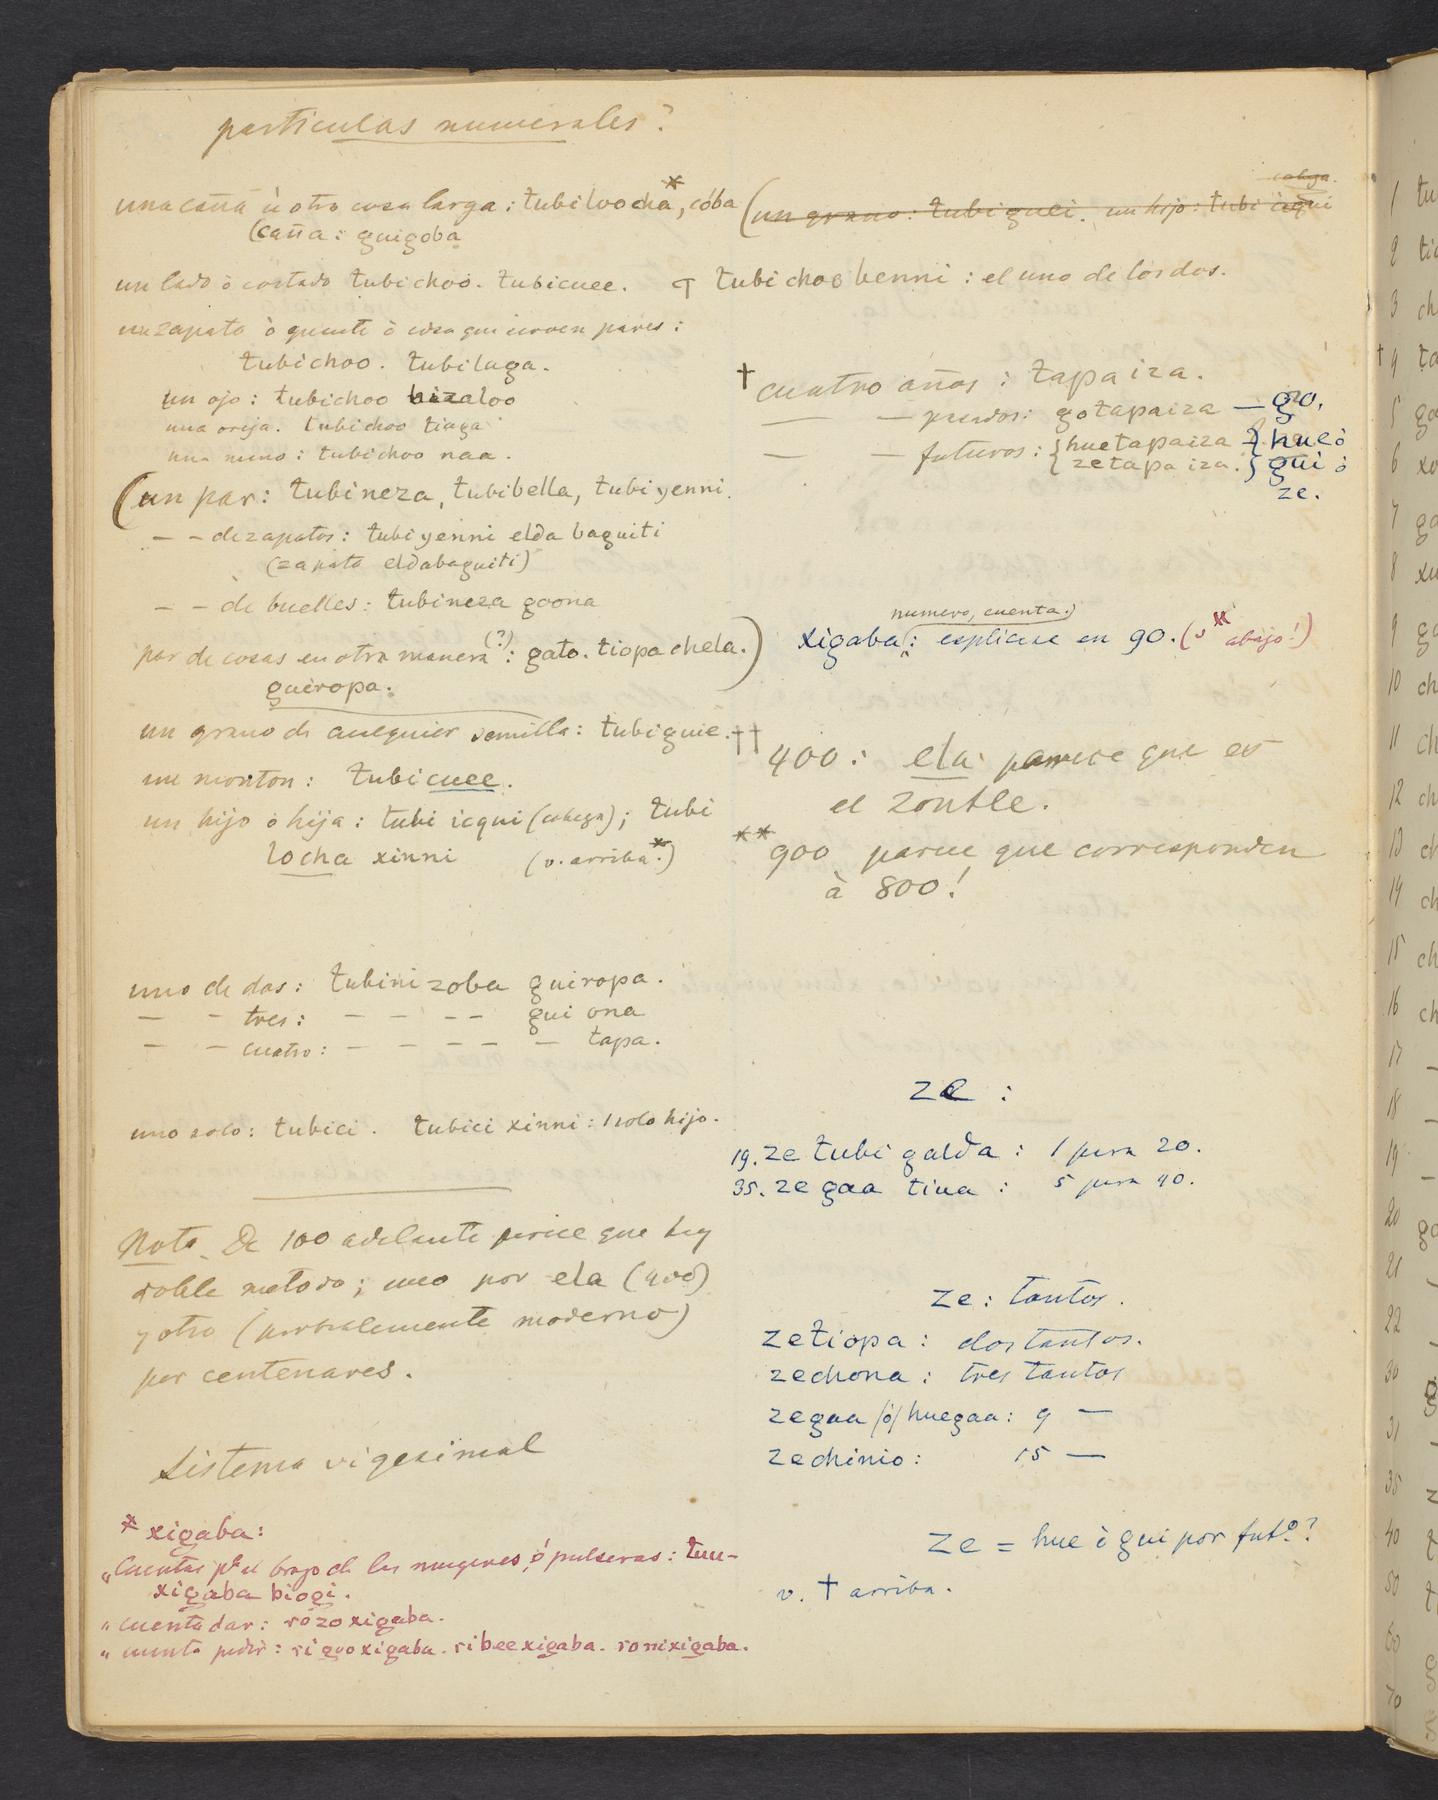 particulas numerales?
una caña ù otra cosa larga: tubiloocha*, cóba
(caña: guigoba
(un grano: tubiguei. un hijo: tubi icqui
un lado ò costado tubichoo. tubicuee.
tubichoo benni: el uno de los dos.
un zapato ò guante ò cosa que sirven pares:
tubichoo. tubilaga.
un ojo: tubichoo bizaloo
una oreja. tubichoo tiaga
una mano: tubichoo naa.
(un par: tubineza, tubibella, tubiyenni.
— — de zapatos: tubiyenni elda baguiti
(zapato eldabaguiti)
— — de buelles: tubineza goona
par de cosas en otra manera (?): gato. tiopa chela.)
guiropa.
un grano de cualquier semilla: tubiguie.
un monton: tubicuee.
un hijo ò hija: tubi icqui (cabeza); tubi
locha xinni (v. arriba *)
uno de dos: tubini zoba guiropa.
— — tres: — — — — gui ona
— — cuatro: — — — — — tapa.
uno solo: tubici. tubici xinni: 1 solo hijo.
Nota. De 100 adelante parece que hay
doble metodo; uno por ela (400)
y otro (probablemente moderno)
por centenares.
Sistema vigesimal
* xigaba:
„ Cuentas pa el brazo de las mugeres, ó pulseras: tuu-
xigaba biogi.
„ cuenta dar: rozoxigaba.
„ cuenta pedir: riguoxigaba. ribeexigaba. ronixigaba.
† cuatro años: tapa iza.
— — pasados: gotapaiza — go.
— — futuros: {huetapaiza } hue ò
{zetapa iza. } gui ò
ze.
numero, cuenta.)
xigaba: esplicase en 90. (v * abajo!)
†† 400: ela: parece que es
el zontle.
** 900 parece que corresponden
à 800!
ze:
19. ze tubi galda: 1 para 20.
35. ze gaa tiua: 5 para 40.
ze: tantos.
zetiopa: dos tantos.
zechona: tres tantos
zegaa /ó/ huegaa: 9 —
zechinio: 15 —
ze = hue ò gui por futo.?
v. † arriba.
1 tu
2 tio
3 ch
† 4 ta
5 ga
6 xo
7 ga
8 xu
9 ga
10 ch
11 ch
12 ch
13 ch
14 ch
15 ch
16 ch
17 —
18 —
19 —
20 ga
21 —
22 —
30 g
31 —
35 z
40 t
50 t
60 g
70 g